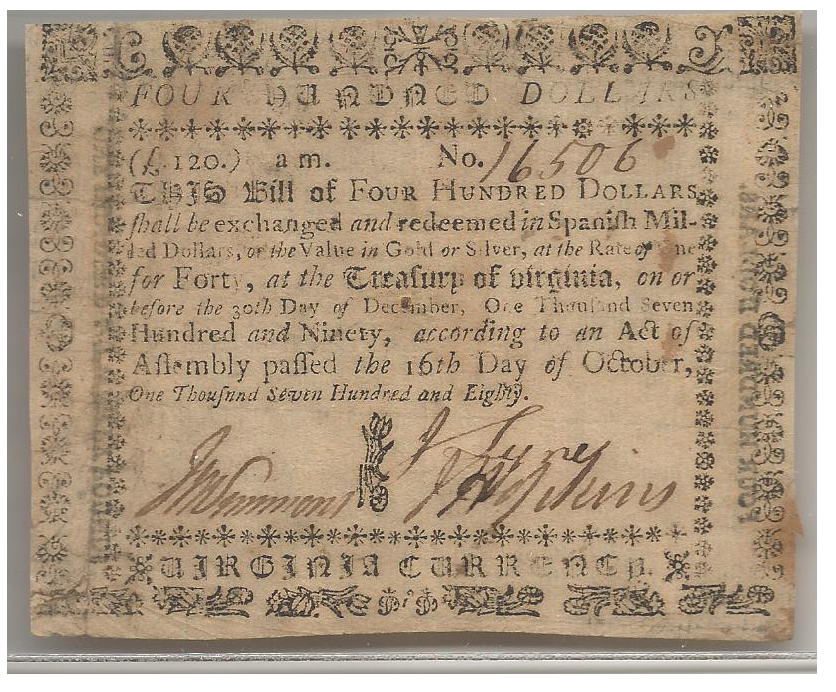 FOUR HUNDRED DOLLARS
(£.120.) am. No. 16506
THIS Bill of FOUR HUNDRED DOLLARS
ſhall be exchanged and redeemed in Spaniſh Mil-
led Dollars, or the Value in Gold or Silver, at the Rate of One
for Forty, at the Treaſury of Virginia, on or
before the 30th Day of December, One Thouſand Seven
Hundred and Ninety, according to an Act of
Aſſembly paſſed the 16th Day of October,
One Thouſand Seven Hundred and Eighty.
J Lyne
J Hopkins
VIRGINIA CURRENCY.